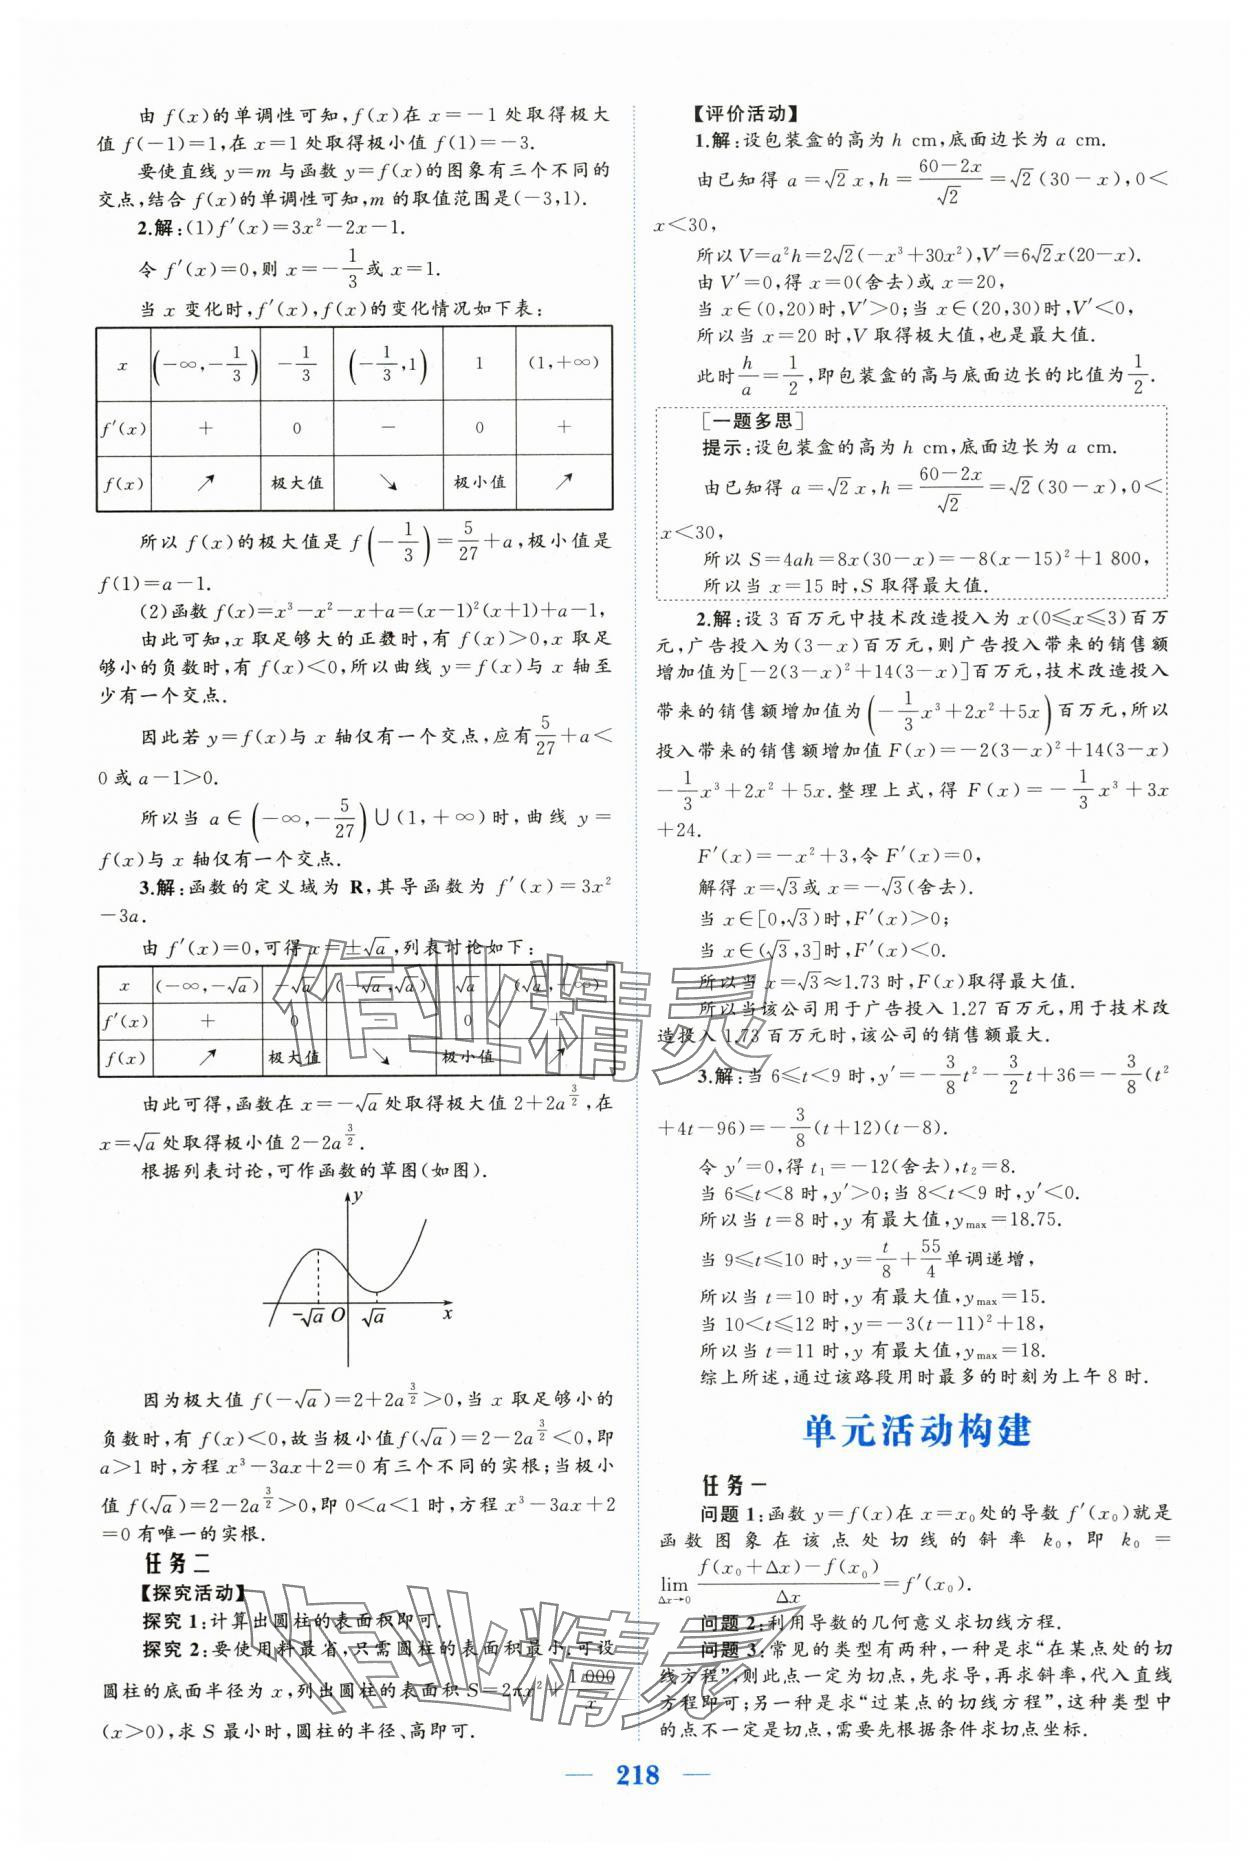 由 f(x)的单调性可知,f(x)在 x=-1 处取得极大
值 f(-1)=1,在 x=1 处取得极小值 f(1)=-3.
要使直线 y=m 与函数 y=f(x)的图象有三个不同的
交点,结合 f(x)的单调性可知,m 的取值范围是(-3,1).
2.解:(1)f′(x)=3x²-2x-1.
令 f′(x)=0,则 x=-1/3或 x=1.
当 x 变化时,f′(x),f(x)的变化情况如下表:
x (-∞,-1/3) -1/3 (-1/3,1) 1 (1,+∞)
f′(x) + 0 - 0 +
f(x) ↗ 极大值 ↘ 极小值 ↗
所以 f(x)的极大值是 f(-1/3)=5/27+a,极小值是
f(1)=a-1.
(2)函数 f(x)=x³-x²-x+a=(x-1)²(x+1)+a-1,
由此可知,x 取足够大的正数时,有 f(x)>0,x 取足
够小的负数时,有 f(x)<0,所以曲线 y=f(x)与 x 轴至
少有一个交点.
因此若 y=f(x)与 x 轴仅有一个交点,应有5/27+a<
0或 a-1>0.
所以当 a∈(-∞,-5/27)∪(1,+∞)时,曲线 y=
f(x)与 x 轴仅有一个交点.
3.解:函数的定义域为 R,其导函数为 f′(x)=3x²
-3a.
由 f′(x)=0,可得 x=±√a,列表讨论如下:
x (-∞,-√a) -√a (-√a,√a) √a (√a,+∞)
f′(x) + 0 - 0 +
f(x) ↗ 极大值 ↘ 极小值 ↗
由此可得,函数在 x=-√a处取得极大值 2+2a^(3/2),在
x=√a处取得极小值 2-2a^(3/2).
根据列表讨论,可作函数的草图(如图).
y
-√a O √a x
因为极大值 f(-√a)=2+2a^(3/2)>0,当 x 取足够小的
负数时,有 f(x)<0,故当极小值f(√a)=2-2a^(3/2)<0,即
a>1 时,方程 x³-3ax+2=0 有三个不同的实根;当极小
值 f(√a)=2-2a^(3/2)>0,即 0<a<1 时,方程 x³-3ax+2
=0 有唯一的实根.
任务二
【探究活动】
探究 1:计算出圆柱的表面积即可.
探究 2:要使用料最省,只需圆柱的表面积最小.可设
圆柱的底面半径为 x,列出圆柱的表面积 S=2πx²+1 000/x
(x>0),求 S 最小时,圆柱的半径、高即可.
【评价活动】
1.解:设包装盒的高为 h cm,底面边长为 a cm.
由已知得 a=√2x,h=(60-2x)/√2=√2(30-x),0<
x<30,
所以 V=a²h=2√2(-x³+30x²),V′=6√2x(20-x).
由 V′=0,得 x=0(舍去)或 x=20,
当 x∈(0,20)时,V′>0;当 x∈(20,30)时,V′<0,
所以当 x=20 时,V 取得极大值,也是最大值.
此时h/a=1/2,即包装盒的高与底面边长的比值为1/2.
[一题多思]
提示:设包装盒的高为 h cm,底面边长为 a cm.
由已知得 a=√2x,h=(60-2x)/√2=√2(30-x),0<
x<30,
所以 S=4ah=8x(30-x)=-8(x-15)²+1 800,
所以当 x=15 时,S 取得最大值.
2.解:设 3 百万元中技术改造投入为 x(0≤x≤3)百万
元,广告投入为(3-x)百万元,则广告投入带来的销售额
增加值为[-2(3-x)²+14(3-x)]百万元,技术改造投入
带来的销售额增加值为(-1/3x³+2x²+5x)百万元,所以
投入带来的销售额增加值 F(x)=-2(3-x)²+14(3-x)
-1/3x³+2x²+5x.整理上式,得 F(x)=-1/3x³+3x
+24.
F′(x)=-x²+3,令 F′(x)=0,
解得 x=√3或 x=-√3(舍去).
当 x∈[0,√3)时,F′(x)>0;
当 x∈(√3,3]时,F′(x)<0.
所以当 x=√3≈1.73 时,F(x)取得最大值.
所以当该公司用于广告投入 1.27 百万元,用于技术改
造投入 1.73 百万元时,该公司的销售额最大.
3.解:当 6≤t<9 时,y′=-3/8t²-3/2t+36=-3/8(t²
+4t-96)=-3/8(t+12)(t-8).
令 y′=0,得 t₁=-12(舍去),t₂=8.
当 6≤t<8 时,y′>0;当 8<t<9 时,y′<0.
所以当 t=8 时,y 有最大值,yₘₐₓ=18.75.
当 9≤t≤10 时,y=t/8+55/4单调递增,
所以当 t=10 时,y 有最大值,yₘₐₓ=15.
当 10<t≤12 时,y=-3(t-11)²+18,
所以当 t=11 时,y 有最大值,yₘₐₓ=18.
综上所述,通过该路段用时最多的时刻为上午 8 时.
单元活动构建
任务一
问题 1:函数 y=f(x)在 x=x₀处的导数 f′(x₀)就是
函数图象在该点处切线的斜率 k₀,即 k₀=
lim Δx→0 (f(x₀+Δx)-f(x₀))/Δx=f′(x₀).
问题 2:利用导数的几何意义求切线方程.
问题 3:常见的类型有两种,一种是求“在某点处的切
线方程”,则此点一定为切点,先求导,再求斜率,代入直线
方程即可;另一种是求“过某点的切线方程”,这种类型中
的点不一定是切点,需要先根据条件求切点坐标.
— 218 —
作业精灵
作业精灵